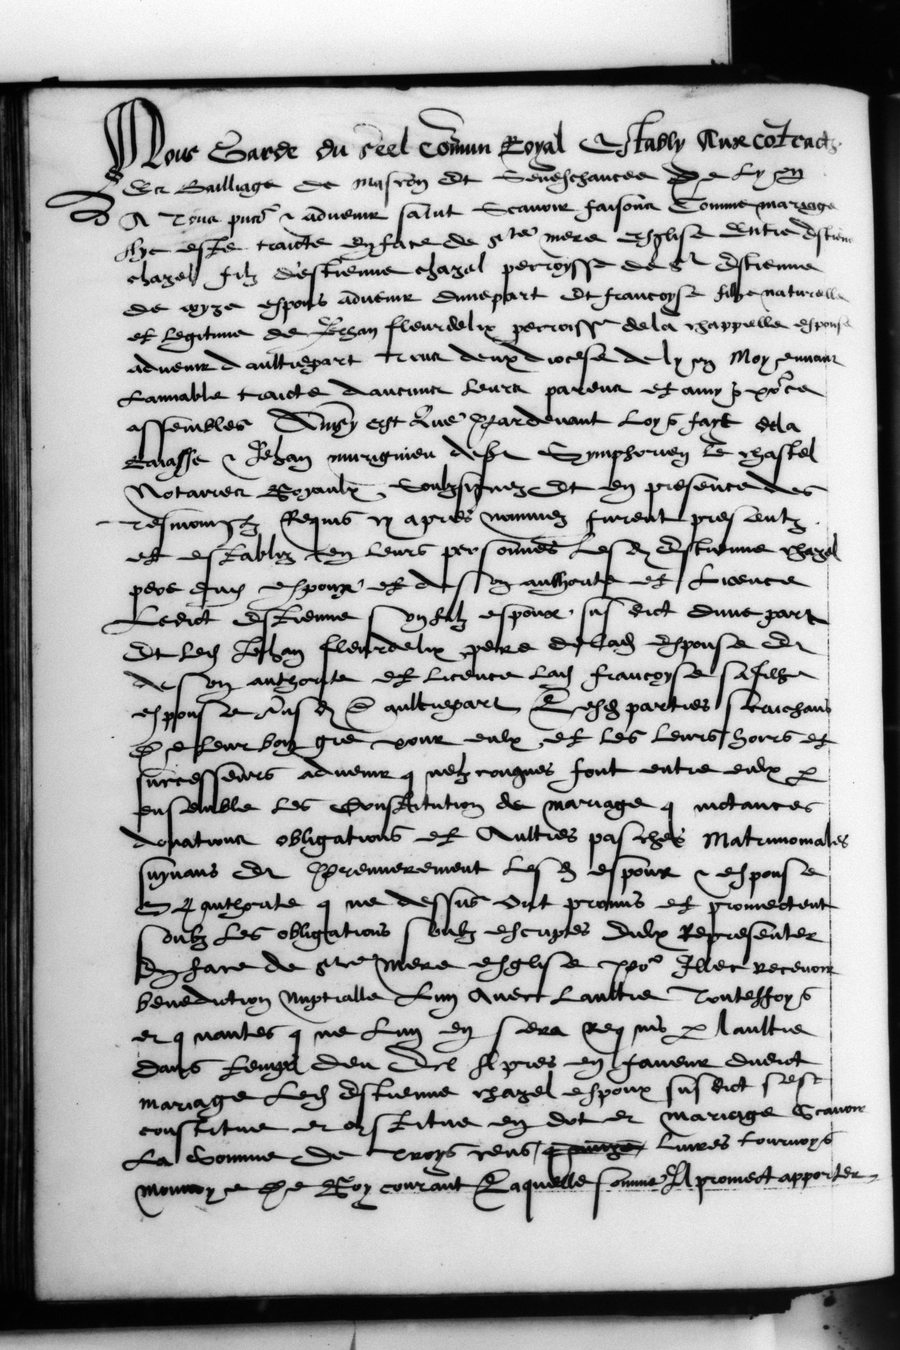 Nous Garde du Seel Comun Royal Estably Aux cotractz
Es Bailliage de Mascon Et Seneschaucee De Lyon
A Tous pncs & advenir salut Scavoir faisons Comme mariage
Aye este traicte En face de ste mere Esglise Entre Estienne
chazel filz d'estienne chazel perroysse de St Estienne
de espoux advenir dunepart Et francoyse fille naturelle
et legitime de Jehan fleurdelix perroisse dela chappelle espouse
advenir daultrepart Tous deux diocese de lyon Moyennant
Lamiable traicte daucuns leurs parens et amys
assembles Ainsy est Que Pardevant Loys fayt dela
& Jehan de St Symphorien le chastel
Notaires Royaulx Soubzsignez Et en presence des
Tesmoingtz Requis cy apres nommez furent presentz
et establiz en leurs personnes Lesd Estienne chazel
pere dud espoux et de son authorite et Licence
Ledict Estienne son filz espoux susdict dune part
Et led Jehan fleurdelix pere de lad Espouse Et
de son authorite et licence lad francoyse sa fille
espouse susd D aultrepart Lesd parties scaichans
De leur bon gre pour eulx et les leurs hoirs et
successeurs advenir q nelzconques font entre eulx p
ensemble les Constitution de mariage q uictances
donations obligations et Aultres pasches Matrimoniales
suyvans Et Premierement Lesd espoux & espouse
D authorite q ue dessus Ont promis et promectent
soubz les obligations soubz escriptes Eulx Representer
En face de ste Mere esglise Illec recevoir
benediction Nuptialle Lun Avec Laultre Toutesfoys
et q uantes q ue Lun en sera Requis p laultre
dans temps deu Et Apres en faveur dudict
mariage Led Estienne chazel espoux susdict sest
constitue et constitue en dot et mariage Scavoir
La Somme De Troys cens livres tournoys
monnoye De Roy courant Laquelle somme Il promect apporter